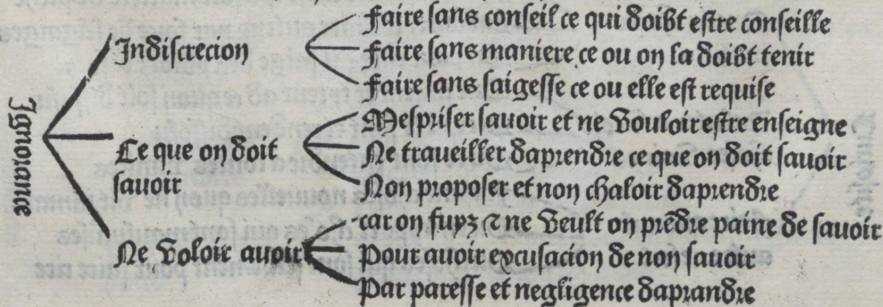 Ignorance
Indiscrecion
Faire sans conseil ce qui doibt estre conseille
Faire sans maniere ce ou on la doibt tenir
Faire sans saigesse ce ou elle est requise
Ce que on doit
savoir
Mespriser savoir et ne vouloir estre enseigne
Ne traveiller daprendre ce que on doit savoir
Non proposer et non chaloir daprendre
Ne voloir avoir
car on fuyz ⁊ ne veult on prẽdre paine de savoir
Pour avoir excusacion de non savoir
Par paresse et negligence daprandre